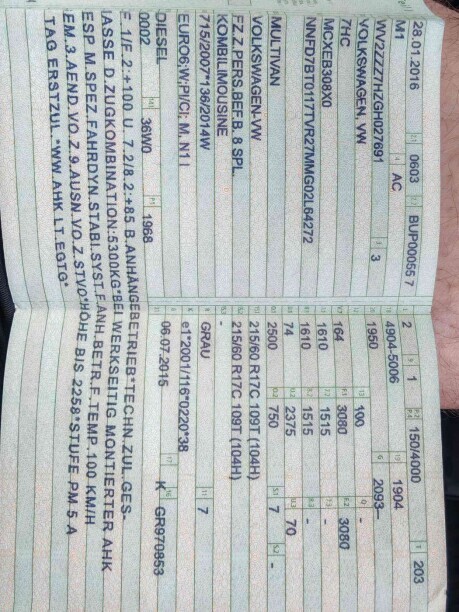 28.01.2016 0603 BUP00055 7
M1 AC
WV2ZZZ7HZGH027691 3
VOLKSWAGEN, VW
7HC
MCXEB308X0
NNFD7BT0117TVR27MMG02L64272
MULTIVAN
VOLKSWAGEN-VW
FZ.Z.PERS.BEF.B. 8 SPL.
KOMBILIMOUSINE
715/2007*136/2014W
EURO6;W;PI/CI; M, N1 I
DIESEL
0002 36W0 1968
2 1 150/4000 203
4904-5006 1904
1950 2093–
100 -
164 3080 3080
1610 1515 -
1610 1515 -
74 2375 70
2500 750 7 -
215/60 R17C 109T (104H)
215/60 R17C 109T (104H)
-
GRAU 7
e1*2001/116*0220*38
06.07.2015 K GR970853
F. 1/F.2:+100 U. 7.2/8.2:+85 B.ANHÄNGEBETRIEB*TECHN.ZUL.GES-
MASSE D.ZUGKOMBINATION:5300KG*BEI WERKSEITIG MONTIERTER AHK
ESP M.SPEZ.FAHRDYN.STABI.SYST.F.ANH.BETR.F.TEMP.100 KM/H
EM.3.AEND.VO.Z.9.AUSN.VO.Z.STVO*HÖHE BIS 2258*STUFE PM 5 A
TAG ERSTZUL.*WW.AHK LT.EGTG*